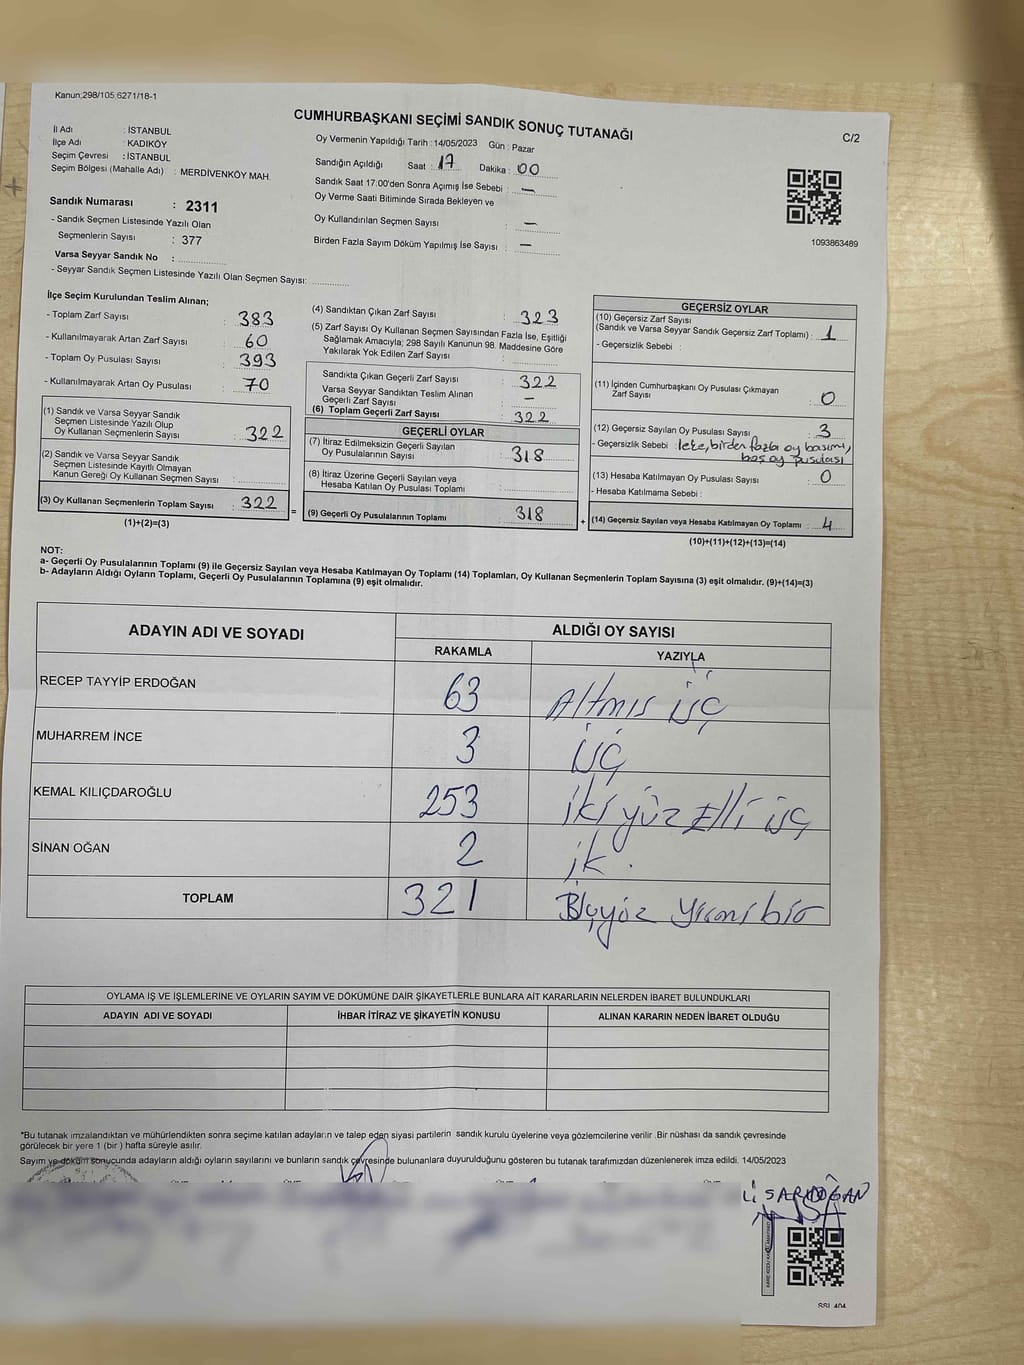 Kanun:298/105;6271/18-1
CUMHURBAŞKANI SEÇİMİ SANDIK SONUÇ TUTANAĞI
C/2
İl Adı : İSTANBUL
İlçe Adı : KADIKÖY
Seçim Çevresi : İSTANBUL
Seçim Bölgesi (Mahalle Adı) : MERDİVENKÖY MAH.
Sandık Numarası : 2311
- Sandık Seçmen Listesinde Yazılı Olan
Seçmenlerin Sayısı : 377
Varsa Seyyar Sandık No :
- Seyyar Sandık Seçmen Listesinde Yazılı Olan Seçmen Sayısı:
Oy Vermenin Yapıldığı Tarih : 14/05/2023 Gün : Pazar
Sandığın Açıldığı Saat : 17 Dakika : 00
Sandık Saat 17:00'den Sonra Açımış İse Sebebi : —
Oy Verme Saati Bitiminde Sırada Bekleyen ve
Oy Kullandırılan Seçmen Sayısı : —
Birden Fazla Sayım Döküm Yapılmış İse Sayısı : —
1093863489
İlçe Seçim Kurulundan Teslim Alınan;
- Toplam Zarf Sayısı : 383
- Kullanılmayarak Artan Zarf Sayısı : 60
- Toplam Oy Pusulası Sayısı : 393
- Kullanılmayarak Artan Oy Pusulası : 70
(1) Sandık ve Varsa Seyyar Sandık
Seçmen Listesinde Yazılı Olup
Oy Kullanan Seçmenlerin Sayısı : 322
(2) Sandık ve Varsa Seyyar Sandık
Seçmen Listesinde Kayıtlı Olmayan
Kanun Gereği Oy Kullanan Seçmen Sayısı :
(3) Oy Kullanan Seçmenlerin Toplam Sayısı : 322
(1)+(2)=(3)
=
(4) Sandıktan Çıkan Zarf Sayısı : 323
(5) Zarf Sayısı Oy Kullanan Seçmen Sayısından Fazla İse, Eşitliği
Sağlamak Amacıyla; 298 Sayılı Kanunun 98. Maddesine Göre
Yakılarak Yok Edilen Zarf Sayısı :
Sandıkta Çıkan Geçerli Zarf Sayısı : 322
Varsa Seyyar Sandıktan Teslim Alınan
Geçerli Zarf Sayısı : —
(6) Toplam Geçerli Zarf Sayısı : 322
GEÇERLİ OYLAR
(7) İtiraz Edilmeksizin Geçerli Sayılan
Oy Pusulalarının Sayısı : 318
(8) İtiraz Üzerine Geçerli Sayılan veya
Hesaba Katılan Oy Pusulası Toplamı :
(9) Geçerli Oy Pusulalarının Toplamı : 318
+
GEÇERSİZ OYLAR
(10) Geçersiz Zarf Sayısı
(Sandık ve Varsa Seyyar Sandık Geçersiz Zarf Toplamı) : 1
- Geçersizlik Sebebi :
(11) İçinden Cumhurbaşkanı Oy Pusulası Çıkmayan
Zarf Sayısı : 0
(12) Geçersiz Sayılan Oy Pusulası Sayısı : 3
- Geçersizlik Sebebi : leke, birden fazla oy basımı,
boş oy pusulası
(13) Hesaba Katılmayan Oy Pusulası Sayısı : 0
- Hesaba Katılmama Sebebi :
(14) Geçersiz Sayılan veya Hesaba Katılmayan Oy Toplamı : 4
(10)+(11)+(12)+(13)=(14)
NOT:
a- Geçerli Oy Pusulalarının Toplamı (9) ile Geçersiz Sayılan veya Hesaba Katılmayan Oy Toplamı (14) Toplamları, Oy Kullanan Seçmenlerin Toplam Sayısına (3) eşit olmalıdır. (9)+(14)=(3)
b- Adayların Aldığı Oyların Toplamı, Geçerli Oy Pusulalarının Toplamına (9) eşit olmalıdır.
ADAYIN ADI VE SOYADI
ALDIĞI OY SAYISI
RAKAMLA
YAZIYLA
RECEP TAYYİP ERDOĞAN 63 Altmış üç
MUHARREM İNCE 3 üç
KEMAL KILIÇDAROĞLU 253 iki yüz Elli üç
SİNAN OĞAN 2 ik.
TOPLAM 321 yirmi bir
OYLAMA İŞ VE İŞLEMLERİNE VE OYLARIN SAYIM VE DÖKÜMÜNE DAİR ŞİKAYETLERLE BUNLARA AİT KARARLARIN NELERDEN İBARET BULUNDUKLARI
ADAYIN ADI VE SOYADI
İHBAR İTİRAZ VE ŞİKAYETİN KONUSU
ALINAN KARARIN NEDEN İBARET OLDUĞU
*Bu tutanak imzalandıktan ve mühürlendikten sonra seçime katılan adayların ve talep eden siyasi partilerin sandık kurulu üyelerine veya gözlemcilerine verilir .Bir nüshası da sandık çevresinde
görülecek bir yere 1 (bir ) hafta süreyle asılır.
Sayım ve döküm sonucunda adayların aldığı oyların sayılarını ve bunların sandık çevresinde bulunanlara duyurulduğunu gösteren bu tutanak tarafımızdan düzenlenerek imza edildi. 14/05/2023
SARIDOĞAN